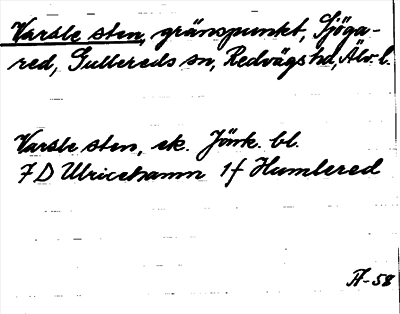 Varsle sten, gränspunkt, Sjöga-
red, Gullereds sn, Redvägs hd, Älv. l.
Varsle sten, ek. Jönk. bl.
7 D Ulricehamn 1 f Humlered
A-58